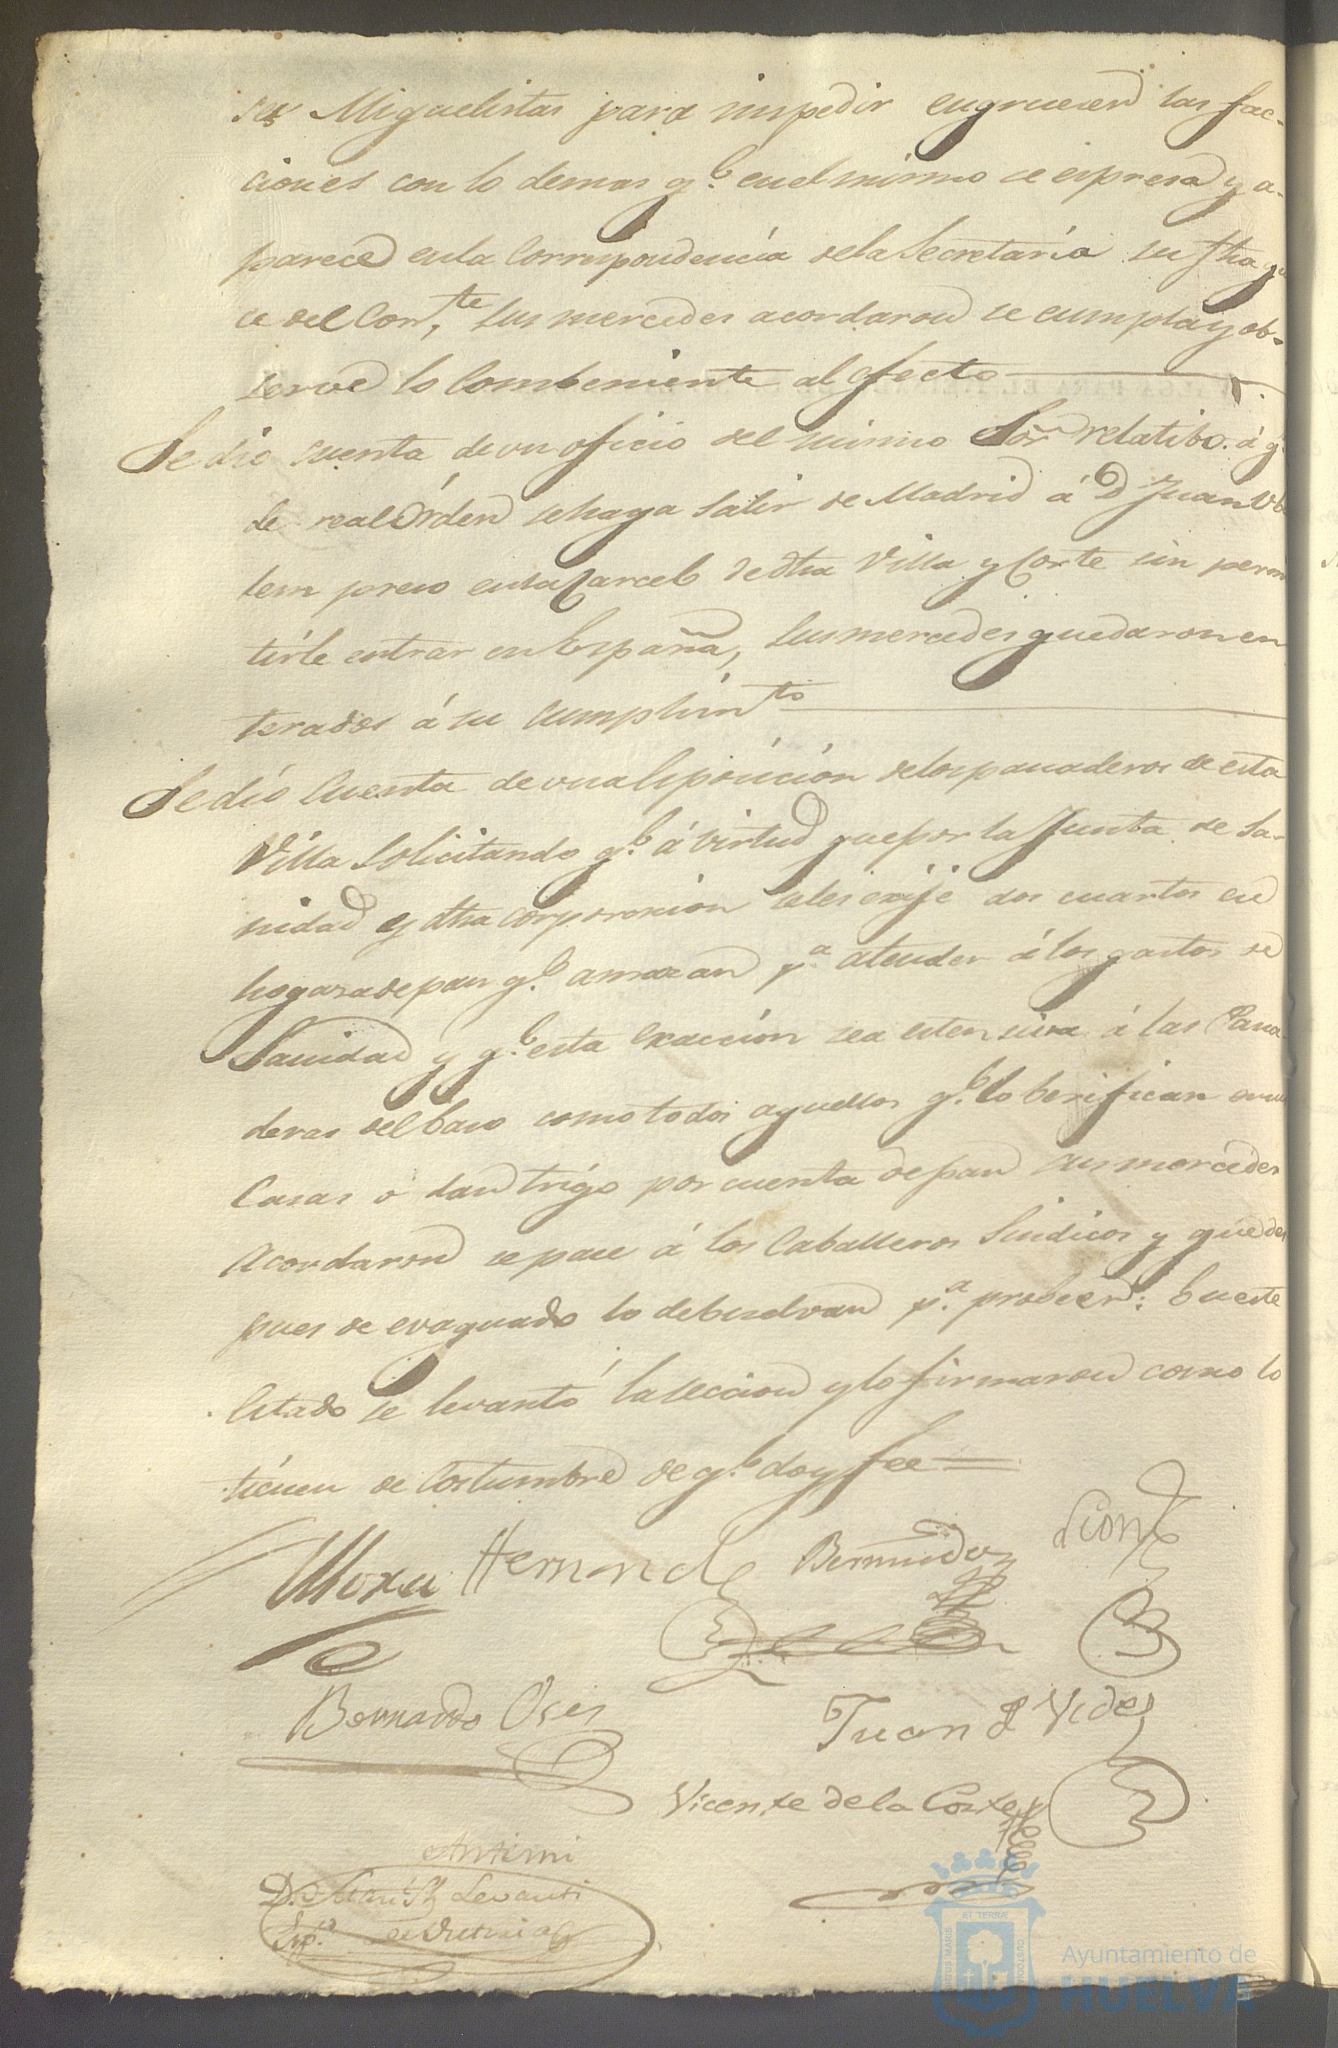 ses Miguelistas para impedir engruesen las fac-
ciones con lo demas q.e en el mismo se espresa y a-
parece en la Correspondencia de la Secretaría su fha
ce del Corr.te, sus mercedes acordaron se cumpla y ob-
serve lo combeniente al efecto
Se dio cuenta de un oficio del mismo Sor. relatibo. á q.e
de real Orden se haga salir de Madrid á D Juan
preso en la Carcel de dha Villa y Corte sin permi
tirle entrar en España, sus mercedes quedaron en
terados á su cumplim.to
Se dió Cuenta de una Sposición de los panaderos de esta
Villa solicitando q.e á virtud que por la Junta de Sa-
nidad y dha corporacion se les exije dos cuartos en
hogaza de pan q.e amazan p.a atender á los gastos de
Sanidad y q.e esta exaccion sea estensiva á las Pana
deras del baso como todos aquellos q.e lo berifican en su
Casas o dan trigo por cuenta de pan sus mercedes
Acordaron se pase á los Caballeros Sindicos y que des
pues de evaquado lo debuelvan p.a probeer: En este
Estado se levantó la seccion y lo firmaron como lo
tienen de Costumbre de q.e doy fee
Mora Hernand Bermudez
Bernardo Oses
Juan J Vides
Vicente de la Corte
Ante mi
D. Levanti
Ayuntamiento de
HUELVA